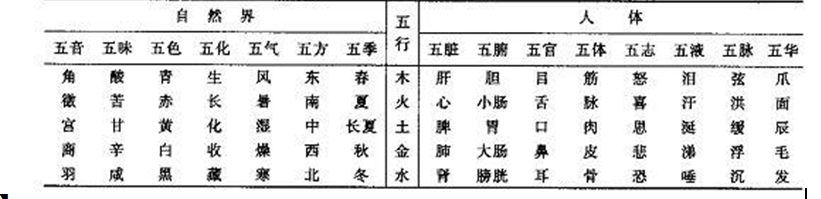 自然界 五行 人体
五音 五味 五色 五化 五气 五方 五季 五脏 五腑 五官 五体 五志 五液 五脉 五华
角 酸 青 生 风 东 春 木 肝 胆 目 筋 怒 泪 弦 爪
徵 苦 赤 长 暑 南 夏 火 心 小肠 舌 脉 喜 汗 洪 面
宫 甘 黄 化 湿 中 长夏 土 脾 胃 口 肉 思 涎 缓 辰
商 辛 白 收 燥 西 秋 金 肺 大肠 鼻 皮 悲 涕 浮 毛
羽 咸 黑 藏 寒 北 冬 水 肾 膀胱 耳 骨 恐 唾 沉 发